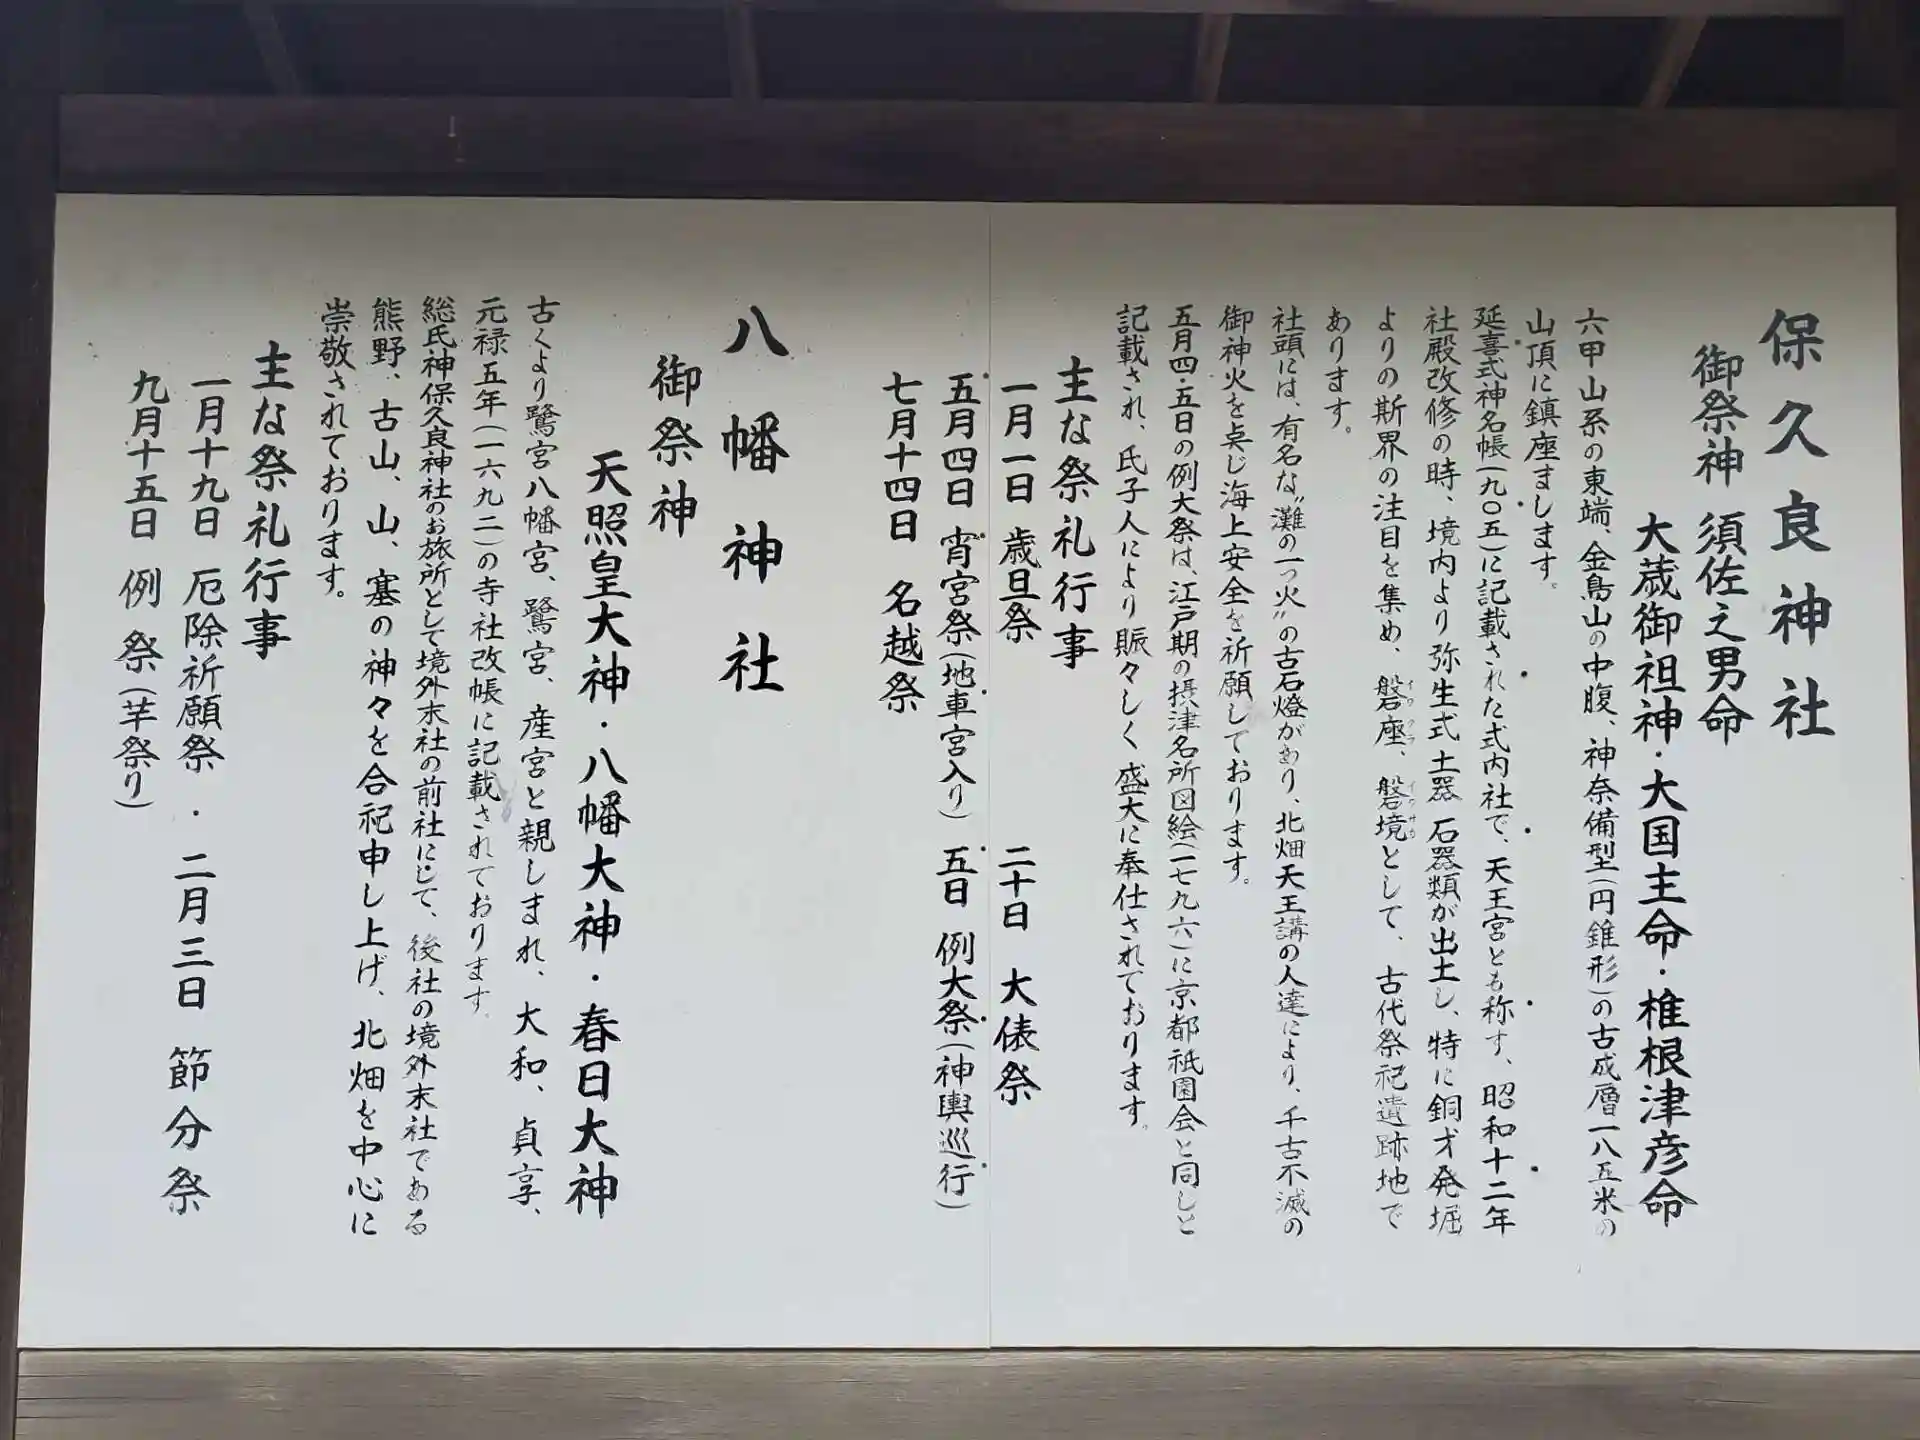 保久良神社
御祭神 須佐之男命
大歳御祖神・大国主命・椎根津彦命
六甲山系の東端、金鳥山の中腹、神奈備型(円錐形)の古成層一八五米の
山頂に鎮座まします。
延喜式神名帳(九〇五)に記載された式内社で、天王宮とも称す、昭和十二年
社殿改修の時、境内より弥生式土器 石器類が出土し、特に銅才発堀
よりの斯界の注目を集め、磐座、磐境として、古代祭祀遺跡地で
イワクラ イワサカ
あります。
社頭には、有名な〝灘の一つ火〟の古石燈があり、北畑天王講の人達により、千古不滅の
御神火を点じ海上安全を祈願しております。
五月四・五日の例大祭は、江戸期の摂津名所図絵(一七九六)に京都祗園会と同しと
記載され、氏子人により賑々しく盛大に奉仕されております。
主な祭礼行事
一月一日 歳旦祭 二十日 大俵祭
五月四日 宵宮祭(地車宮入り) 五日 例大祭(神輿巡行)
七月十四日 名越祭
八幡神社
御祭神
天照皇大神・八幡大神・春日大神
古くより鷺宮八幡宮、鷺宮、産宮と親しまれ、大和、貞享、
元禄五年(一六九二)の寺社改帳に記載されております。
総氏神保久良神社のお旅所として境外末社の前社にして、後社の境外末社である
熊野、古山、山、塞の神々を合祀申し上げ、北畑を中心に
崇敬されております。
主な祭礼行事
一月十九日 厄除祈願祭・二月三日 節分祭
九月十五日 例祭(芋祭り)